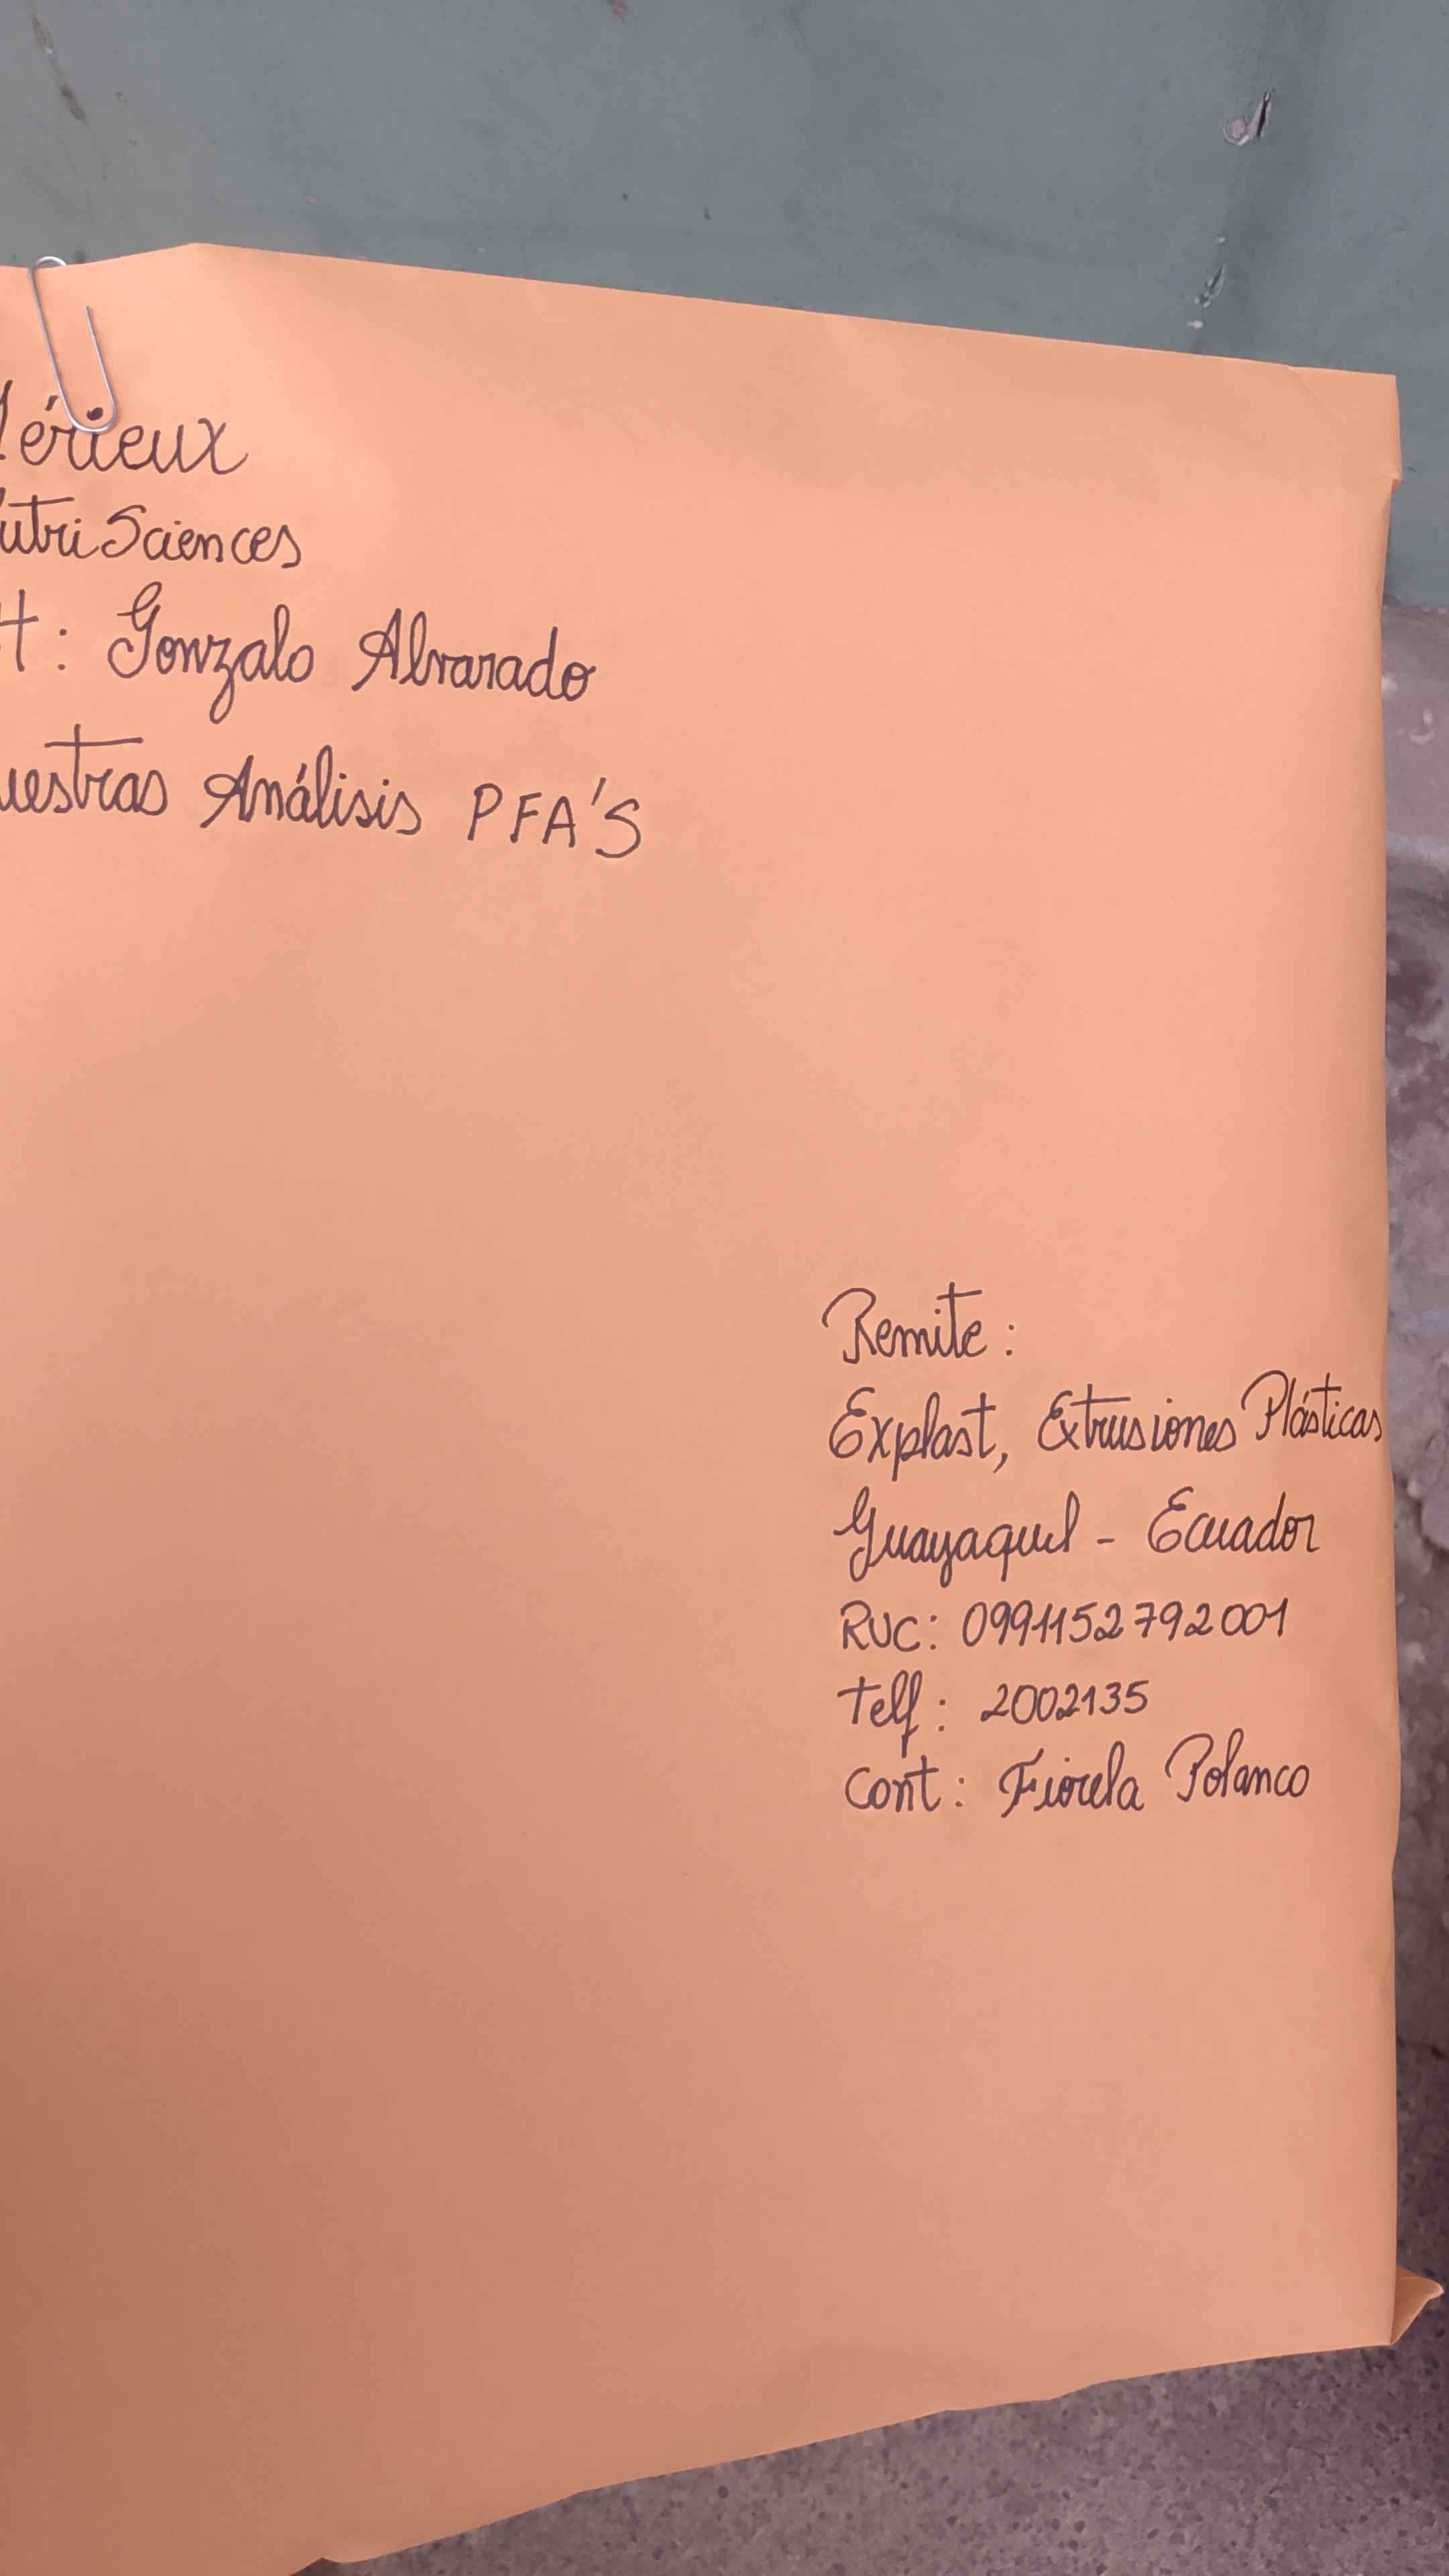 érieux
utriSciences
tt: Gonzalo Alvarado
uestras Análisis PFA'S
Remite:
Explast, Extrusiones Plásticas
Guayaquil - Ecuador
RUC: 0991152792001
Telf: 2002135
Cont: Fiorela Polanco